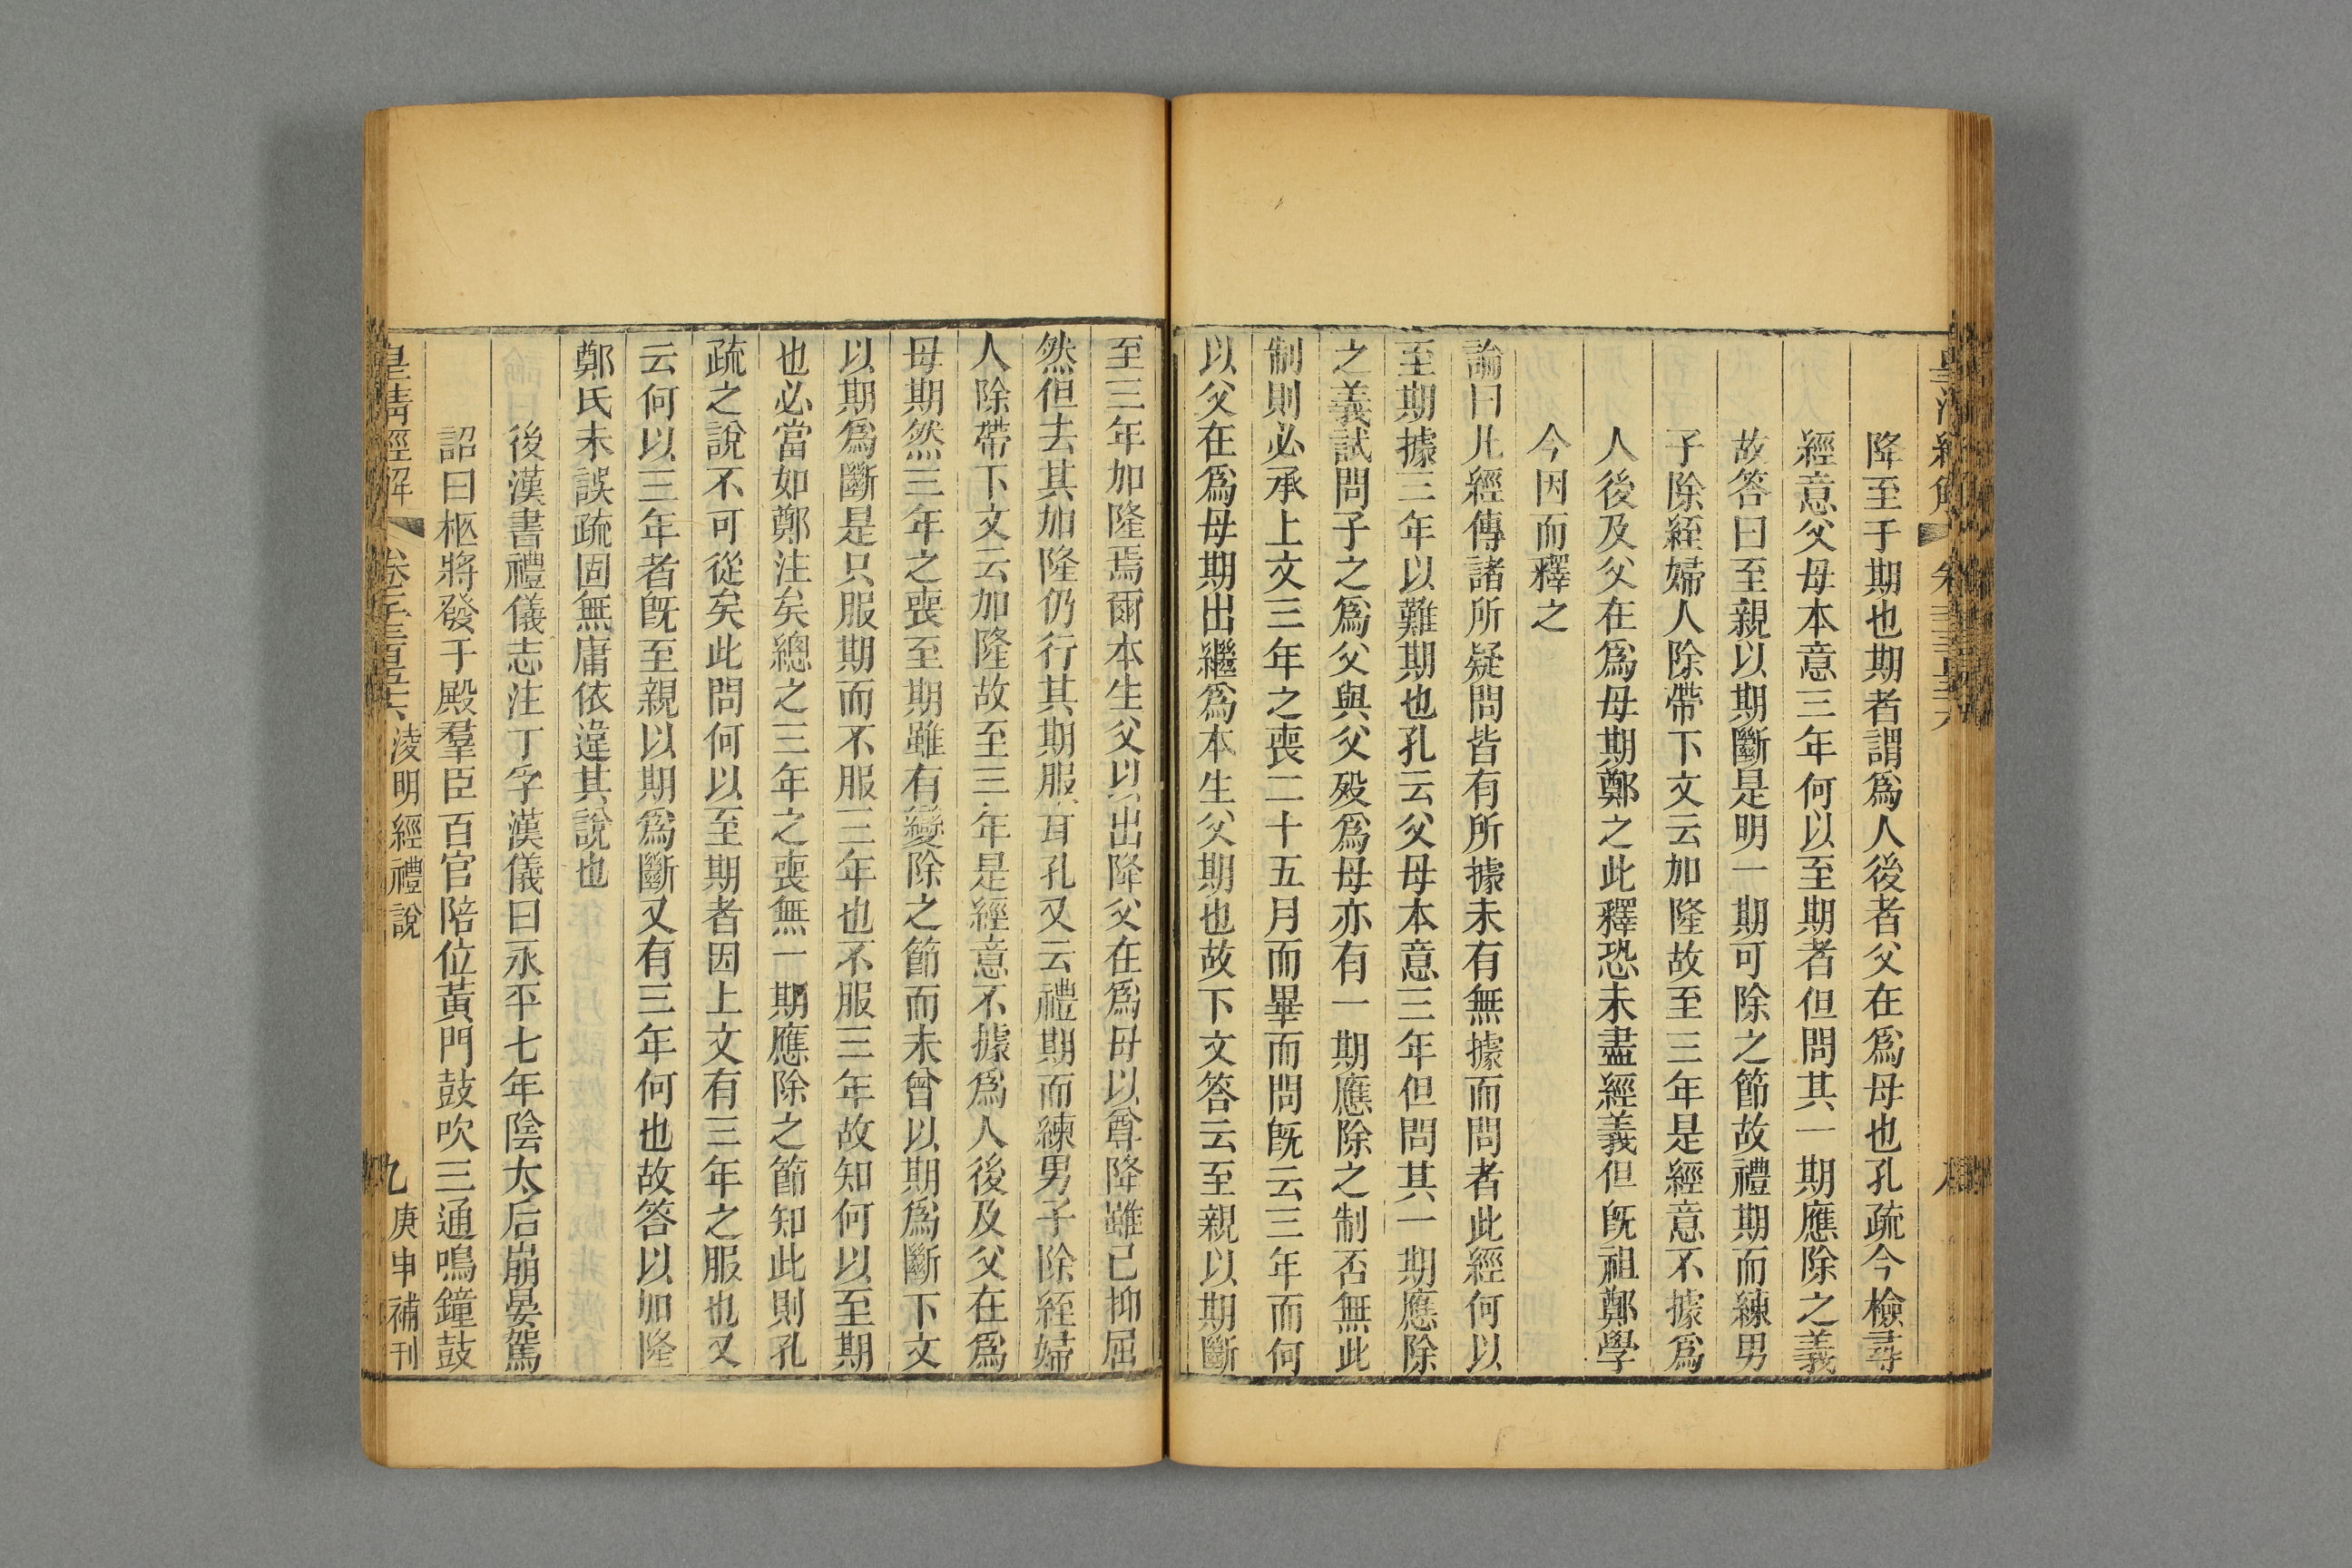 降至于期也期者謂爲人後者父在爲母也孔疏今檢尋
經意父母本意三年何以至期者但問其一期應除之義
故答曰至親以期斷是明一期可除之節故禮期而練男
子除絰婦人除帶下文云加隆故至三年是經意不據爲
人後及父在爲母期鄭之此釋恐未盡經義但旣祖鄭學
今因而釋之
論曰凡經傳諸所疑問皆有所據未有無據而問者此經何以
至期據三年以難期也孔云父母本意三年但問其一期應除
之義試問子之爲父與父歿爲母亦有一期應除之制否無此
制則必承上文三年之喪二十五月而畢而問旣云三年而何
以父在爲母期出繼爲本生父期也故下文答云至親以期斷
至三年加隆焉爾本生父以出降父在爲母以尊降雖己抑屈
然但去其加隆仍行其期服耳孔又云禮期而練男子除絰婦
人除帶下文云加隆故至三年是經意不據爲人後及父在爲
母期然三年之喪至期雖有變除之節而未曾以期爲斷下文
以期爲斷是只服期而不服三年也不服三年故知何以至期
也必當如鄭注矣總之三年之喪無一期應除之節知此則孔
疏之說不可從矣此問何以至期者因上文有三年之服也又
云何以三年者旣至親以期爲斷又有三年何也故答以加隆
鄭氏未誤疏固無庸依違其說也
後漢書禮儀志注丁孚漢儀曰永平七年陰太后崩晏駕
詔曰柩將發于殿羣臣百官陪位黃門鼓吹三通鳴鐘鼓
皇淸經解 淩明經禮說 九 庚申補刊